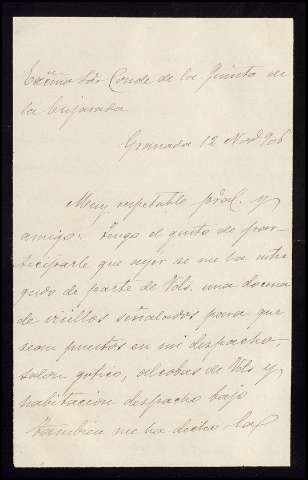 Excmo Sór Conde de la Quinta de
la Enjarada
Granada 12 Nov.e 906
Muy respetable pral. y
amigo: Tengo el gusto de par-
ticiparle que ayer se me ha entre
gado de parte de Vds. una docena
de visillos señalados para que
sean puestos en mi despacho,
salon gotico, alcobas de Vds y
habitacion despacho bajo
Tambien me ha dicho la